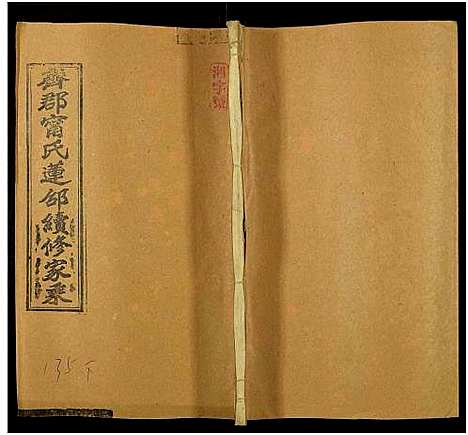 齊郡甯氏蓮邵續修家乘
135下